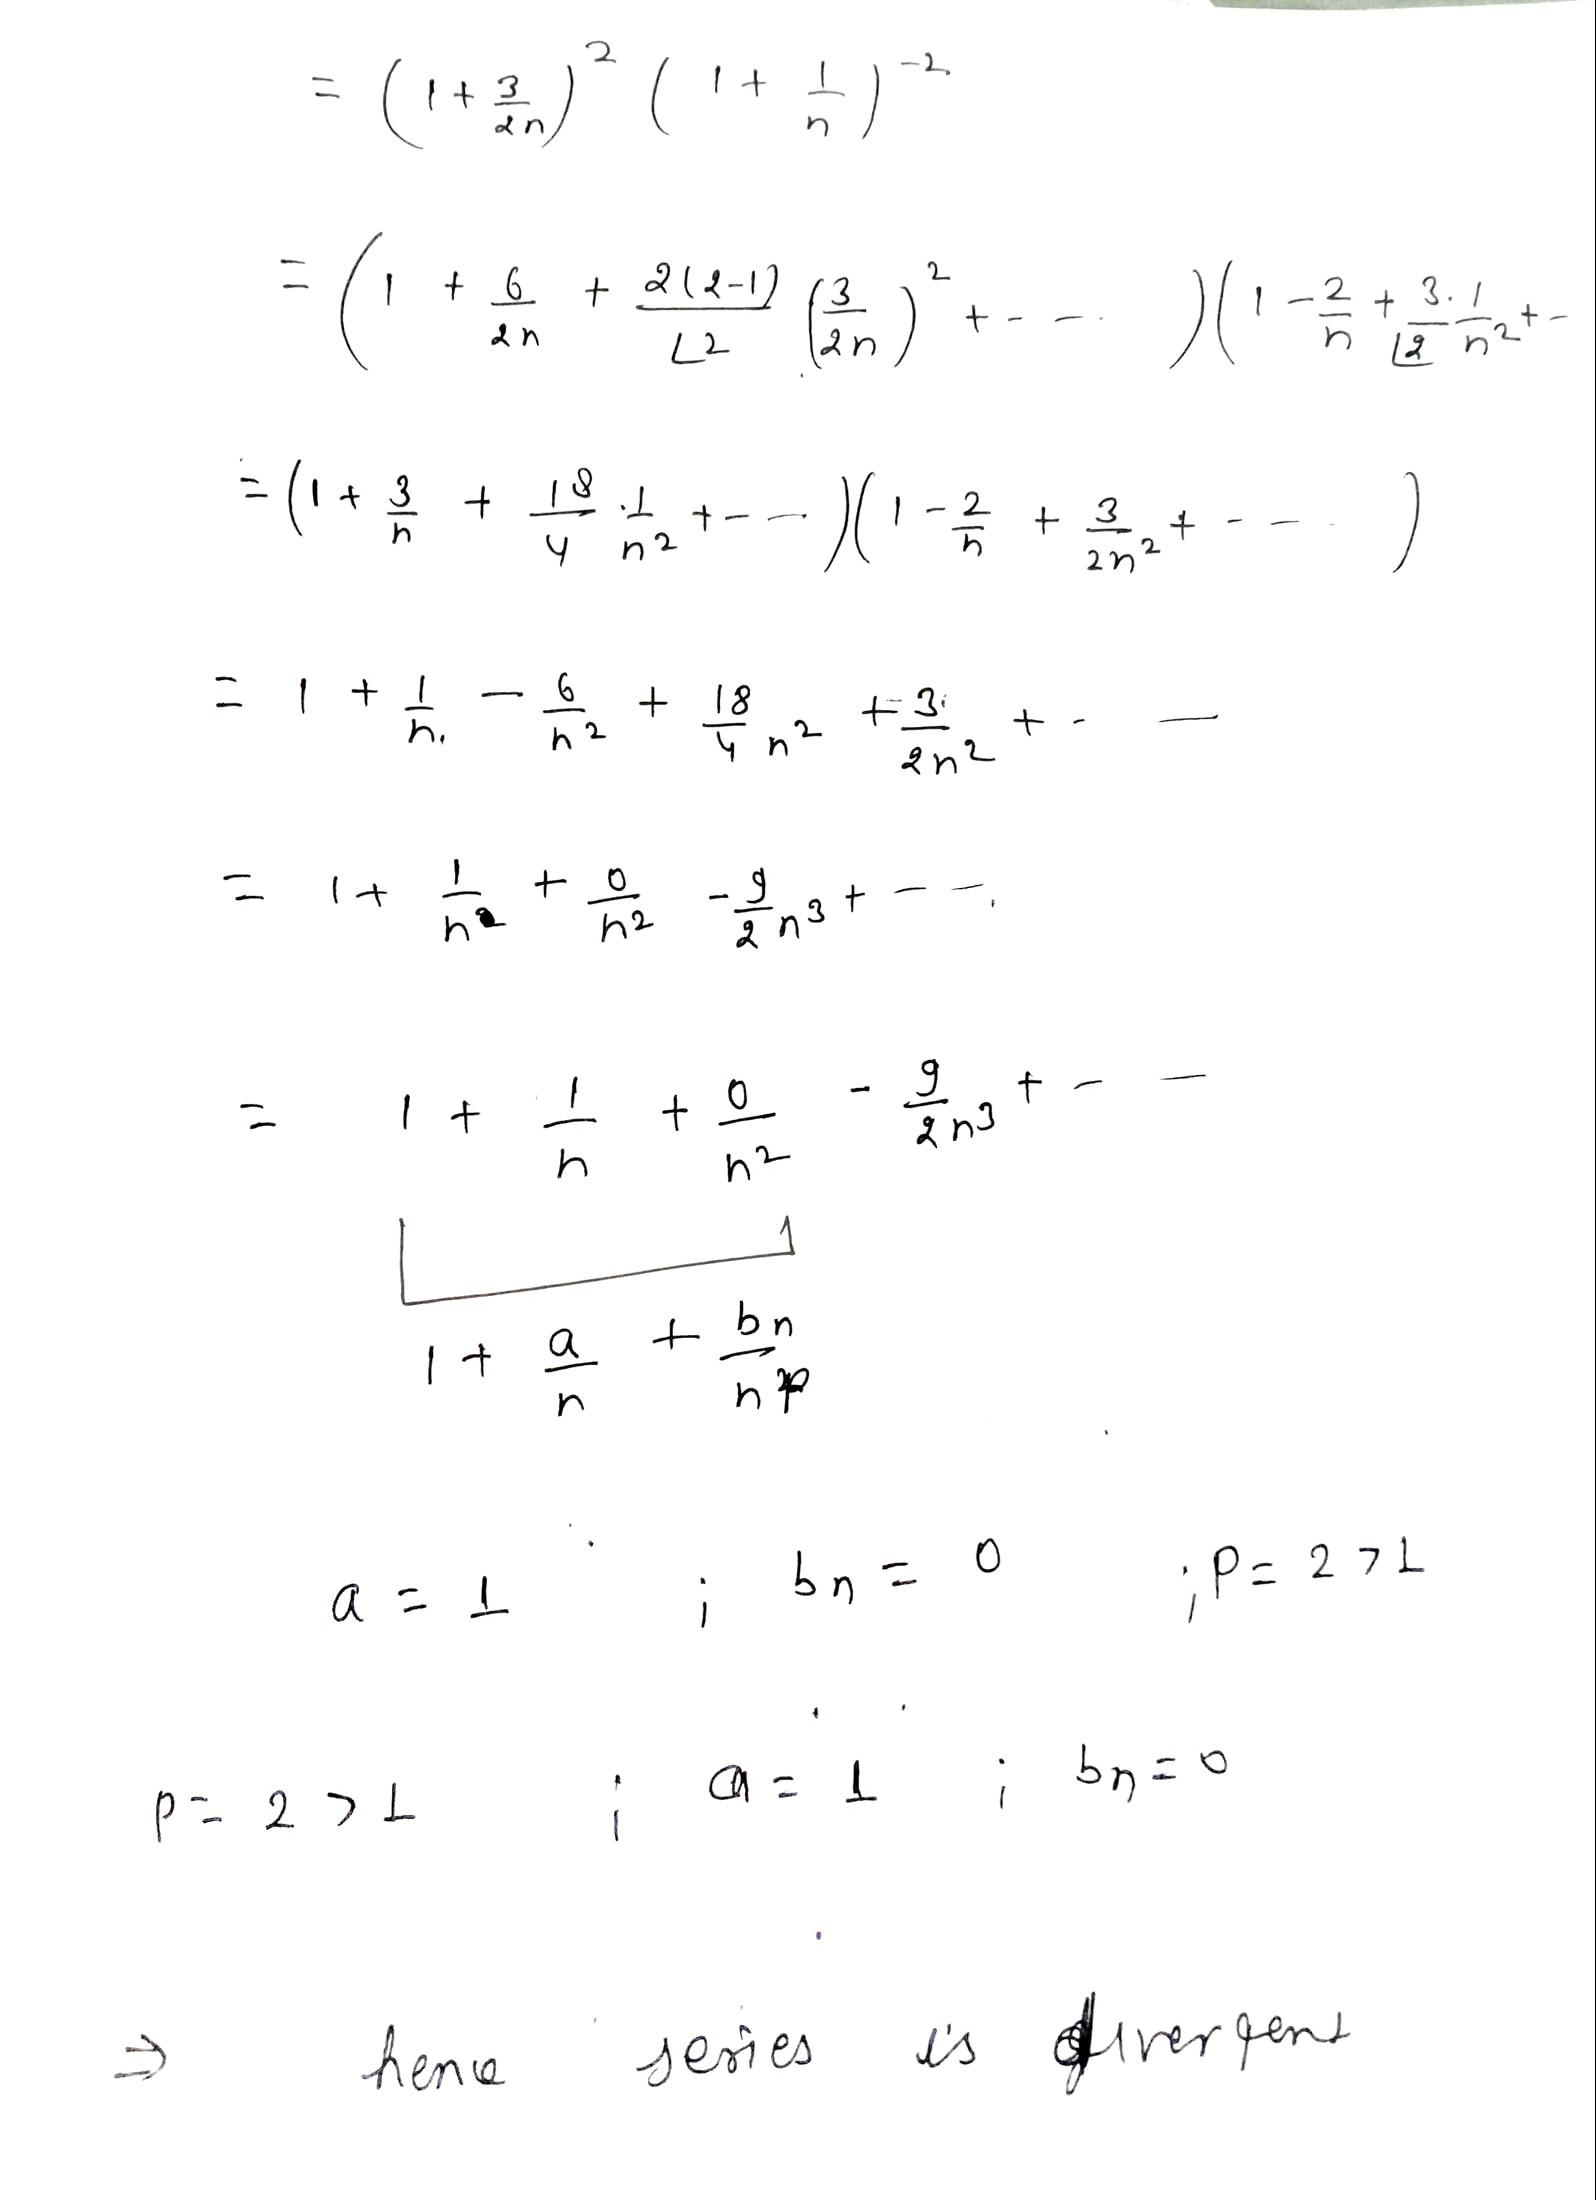 = (1 + 3/2n)² (1 + 1/n)⁻²
= (1 + 6/2n + 2(2-1)/∟2 (3/2n)² + - - - )(1 - 2/n + 3/∟2 · 1/n² + -
= (1 + 3/n + 18/4 · 1/n² + - - )(1 - 2/n + 3/2n² + - - - )
= 1 + 1/n - 6/n² + 18/4n² + 3/2n² + - -
= 1 + 1/n + 0/n² - 9/2n³ + - -
= 1 + 1/n + 0/n² - 9/2n³ + - -
1 + a/n + bn/nᵖ
a = 1 ; bn = 0 ; P = 2 > 1
p = 2 > 1 ; a = 1 ; bn = 0
⇒ hence series is divergent